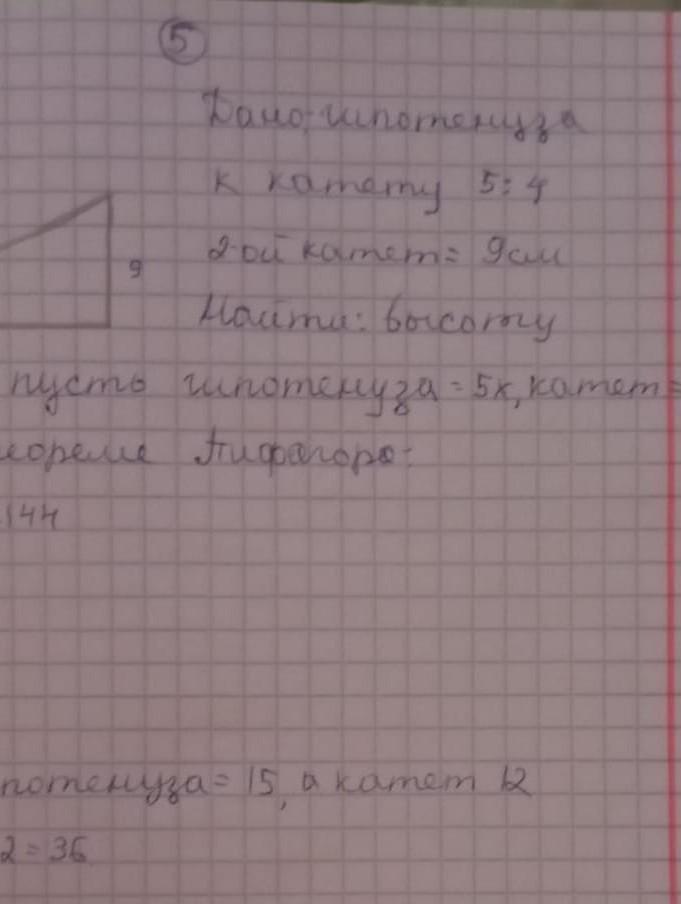 5
Дано: гипотенуза
к катету 5:4
2-ой катет = 9см
9
Найти: высоту
пусть гипотенуза = 5х, катет =
еореме Пифагора:
144
потенуза = 15, а катет 12
2 = 36